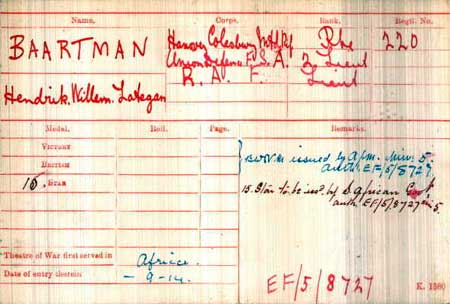 Name. Corps. Rank. Regtl. No.
BAARTMAN Hanover Colesburg Mtd Rif Pte 220
Union Defence F. S. A. 2o Lieut
Hendrik Willem Lategan R. A. F. Lieut
Medal. Roll. Page. Remarks.
Victory
British B W & V M issued by A/m. Min. 5.
auth EF/5/8727.
15 Star 15 Star to be issd. by S African Govt.
auth EF/5/8727 5.
Theatre of War first served in Africa.
Date of entry therein - 9-14.
EF/5/8727
K. 1380